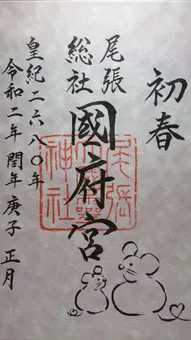 初春
尾張
総社
國府宮
尾張大國霊神社
皇紀二六八〇年
令和二年 閏年 庚子 正月